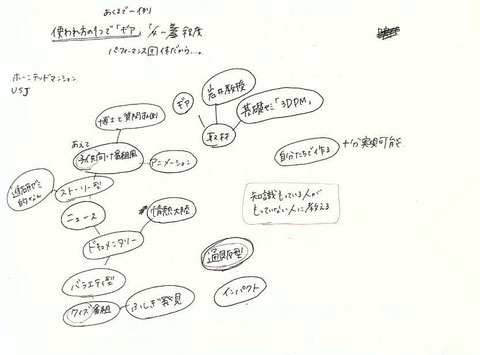 あくまで一例
使われ方の1つで「ギア」
程度
パフィーマンス主体だから…。
ホーンテッドマンション
USJ
ギア
岩井教授
基礎ゼミ「3DPM」
取材
博士と質問
あえて
子供向け番組風
アニメーション
自分たちで作る
十分実現可能
進研ゼミ
的な
ストーリー型
ニュース
情熱大陸
知識もっている人が
もっていない人に教える
ドキュメンタリー
通販型
バラエティ型
クイズ番組
ふしぎ発見
インパクト